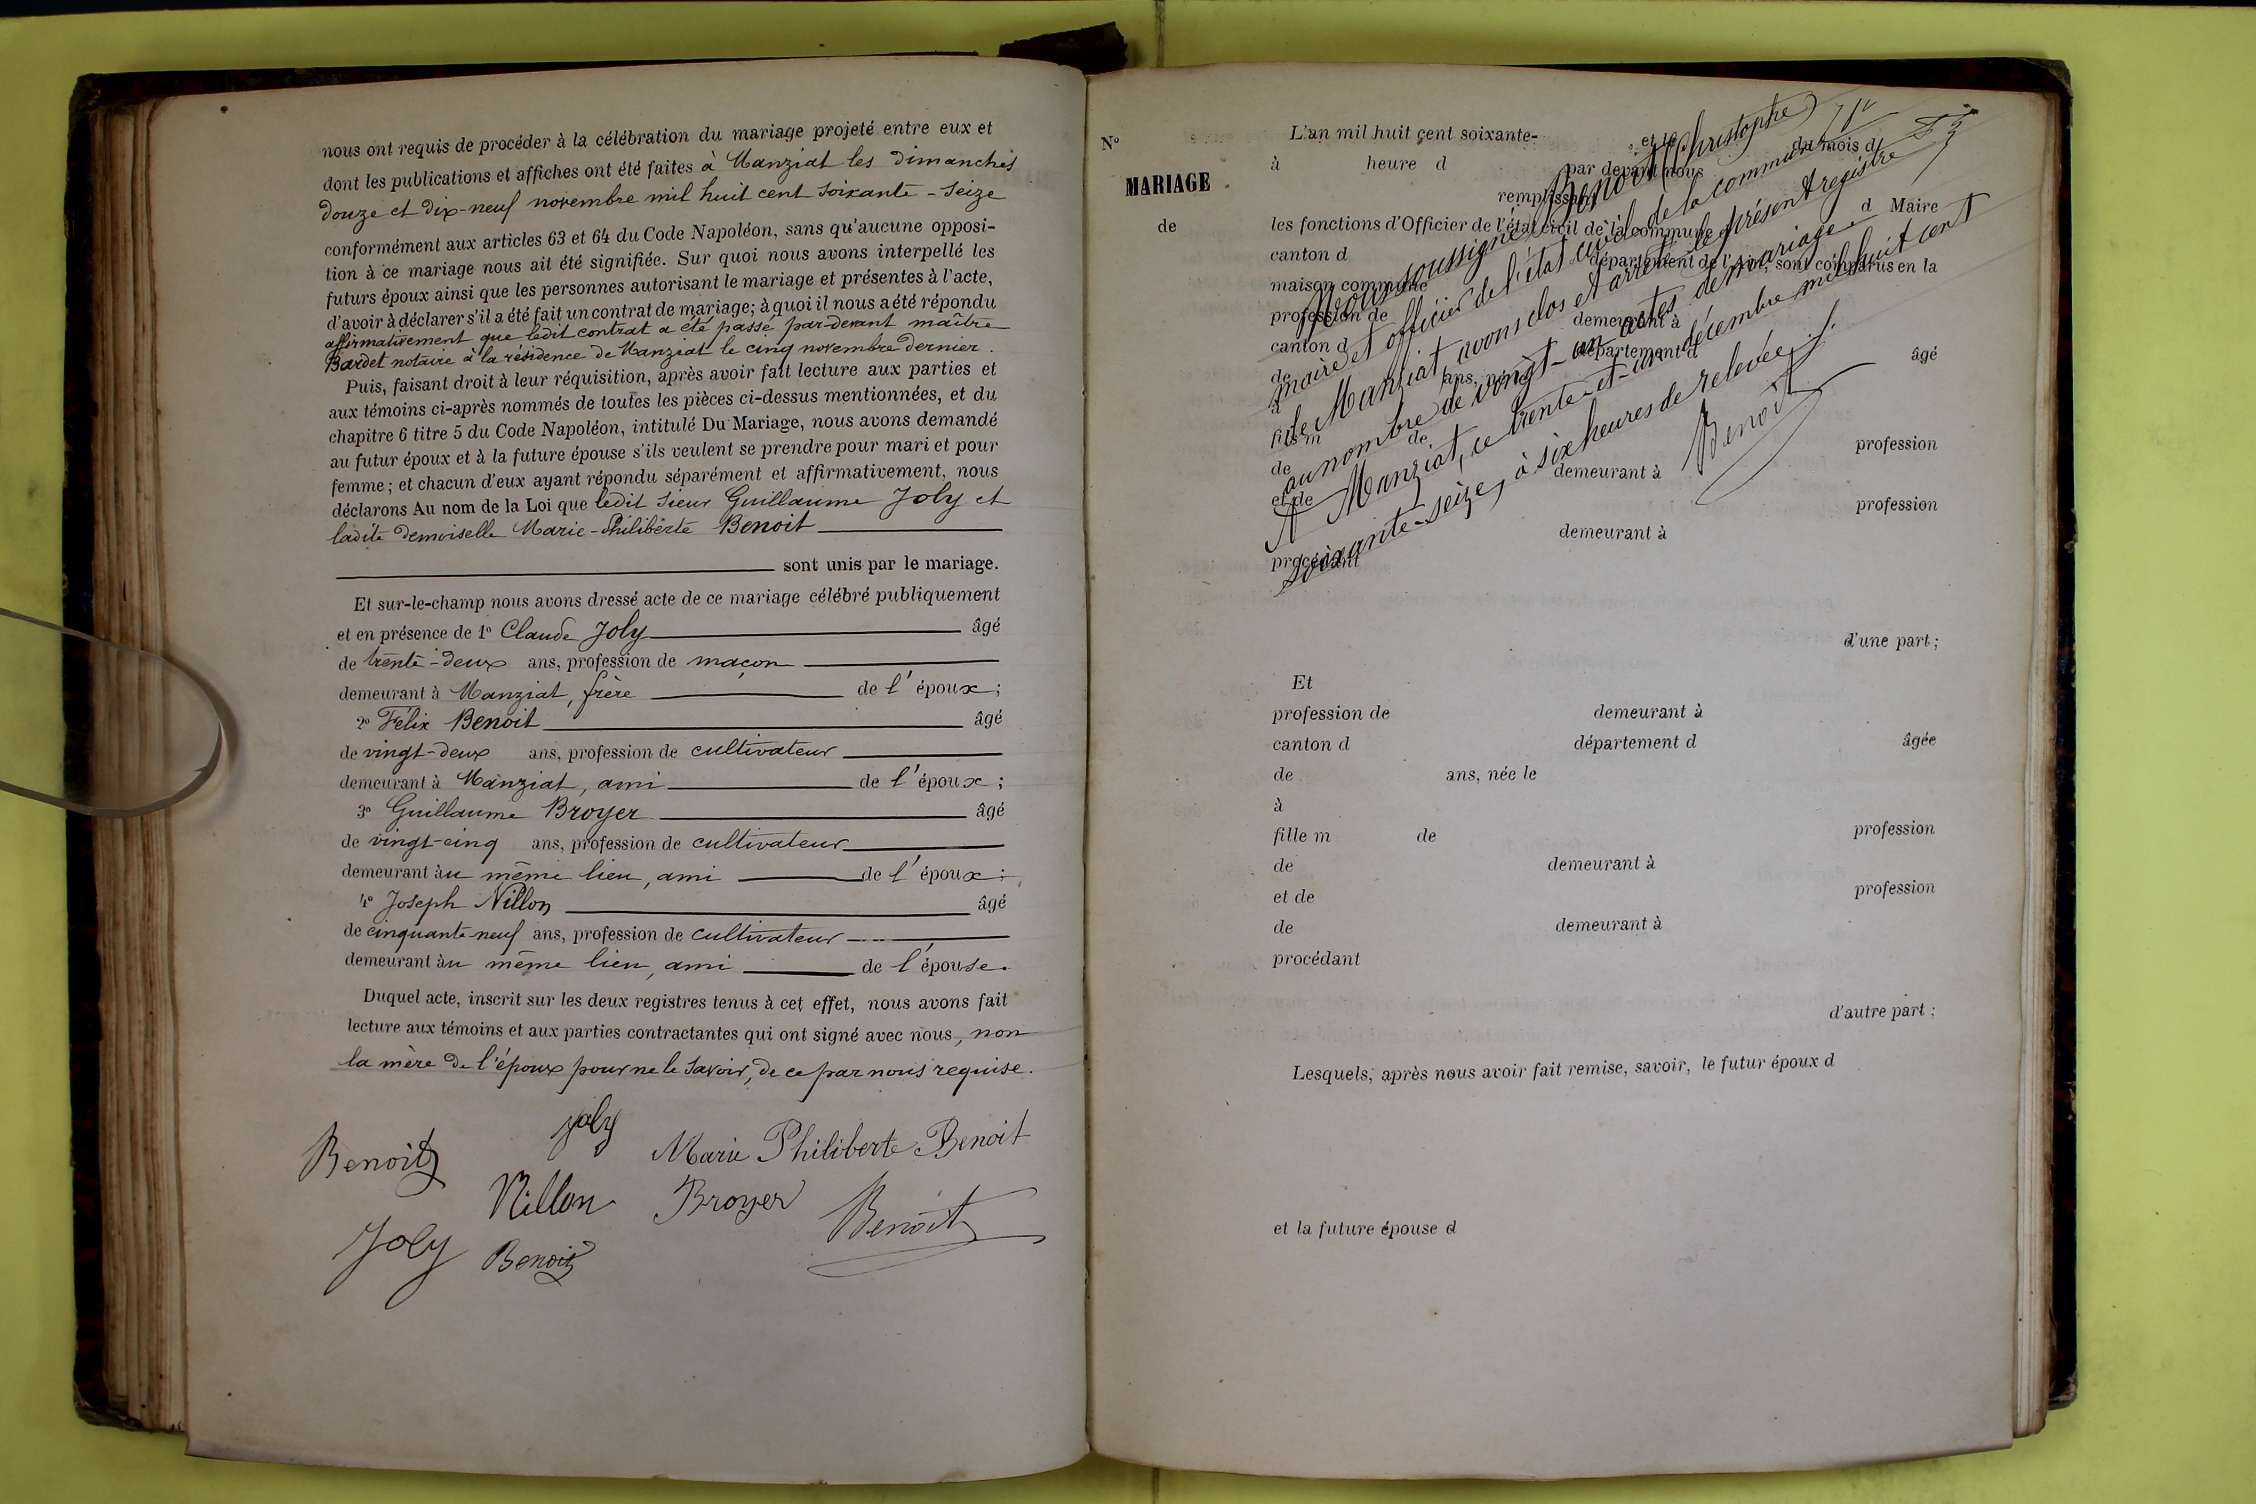 nous ont requis de procéder à la célébration du mariage projeté entre eux et
dont les publications et affiches ont été faites à Manziat les dimanches
douze et dix-neuf novembre mil huit cent soixante-seize
conformément aux articles 63 et 64 du Code Napoléon, sans qu'aucune opposi-
tion à ce mariage nous ait été signifiée. Sur quoi nous avons interpellé les
futurs époux ainsi que les personnes autorisant le mariage et présentes à l'acte,
d'avoir à déclarer s'il a été fait un contrat de mariage; à quoi il nous a été répondu
affirmativement que ledit contrat a été passé par-devant maître
Bardet notaire à la résidence de Manziat le cinq novembre dernier.
Puis, faisant droit à leur réquisition, après avoir fait lecture aux parties et
aux témoins ci-après nommés de toutes les pièces ci-dessus mentionnées, et du
chapitre 6 titre 5 du Code Napoléon, intitulé Du Mariage, nous avons demandé
au futur époux et à la future épouse s'ils veulent se prendre pour mari et pour
femme; et chacun d'eux ayant répondu séparément et affirmativement, nous
déclarons Au nom de la Loi que ledit sieur Guillaume Joly et
ladite demoiselle Marie-Philiberte Benoit
sont unis par le mariage.
Et sur-le-champ nous avons dressé acte de ce mariage célébré publiquement
et en présence de 1° Claude Joly âgé
de trente-deux ans, profession de maçon
demeurant à Manziat, frère de l'époux;
2° Félix Benoit âgé
de vingt-deux ans, profession de cultivateur
demeurant à Manziat, ami de l'époux;
3° Guillaume Broyer âgé
de vingt-cinq ans, profession de cultivateur
demeurant àu même lieu, ami de l'époux;
4° Joseph Nillon âgé
de cinquante-neuf ans, profession de cultivateur
demeurant àu même lieu, ami de l'épouse.
Duquel acte, inscrit sur les deux registres tenus à cet effet, nous avons fait
lecture aux témoins et aux parties contractantes qui ont signé avec nous, non
la mère de l'époux pour ne le savoir, de ce par nous requise.
Joly
Benoit
Marie Philiberte Benoit
Nillon Broyer
Benoit
Joly Benoit
N°
MARIAGE
de
L'an mil huit cent soixante- et le du mois d
à heure d par devant nous
remplissant
les fonctions d'Officier de l'état civil de la commune d Maire
canton d département de l'Ain, sont comparus en la
maison commune
profession de demeurant à
canton d département d âgé
de ans, né le
à
fils m de profession
de demeurant à
et de profession
demeurant à
procédant
d'une part;
Nous soussigné Benoit (Christophe)
maire et officier de l'état civil de la commune
de Manziat avons clos et arrêté le présent registre
au nombre de vingt-un actes de mariage.
A Manziat, ce trente-et-un décembre mil huit cent
soixante-seize, à six heures de relevée.
Benoit
Et
profession de demeurant à
canton d département d âgée
de ans, née le
à
fille m de profession
de demeurant à
et de profession
de demeurant à
procédant
d'autre part;
Lesquels, après nous avoir fait remise, savoir, le futur époux d
et la future épouse d